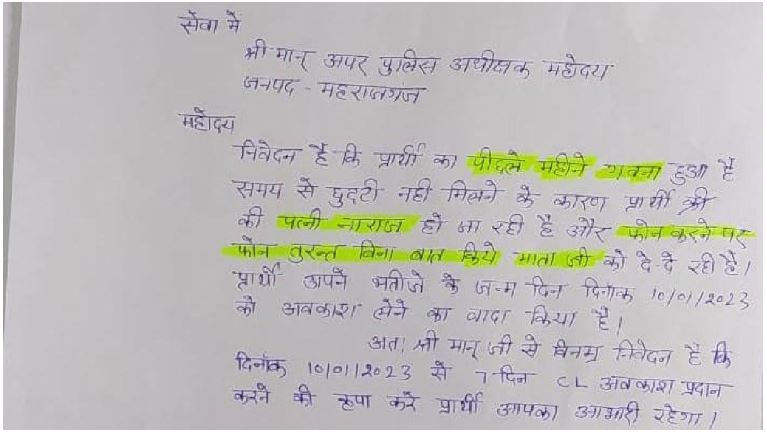 सेवा में
श्री मान् अपर पुलिस अधीक्षक महोदय
जनपद - महराजगंज
महोदय
निवेदन है कि प्रार्थी का पीछले महीने गवना हुआ है
समय से छुट्टी नही मिलने के कारण प्रार्थी श्री
की पत्नी नाराज हो जा रही है और फोन करने पर
फोन तुरन्त बिना बात किये माता जी को दे-दे रही है।
प्रार्थी अपने भतीजे के जन्म दिन दिनांक 10/01/2023
को अवकाश लेने का वादा किया है।
अतः श्री मान् जी से विनम्र निवेदन है कि
दिनांक 10/01/2023 से 7 दिन CL अवकाश प्रदान
करने की कृपा करे प्रार्थी आपका आभारी रहेगा।